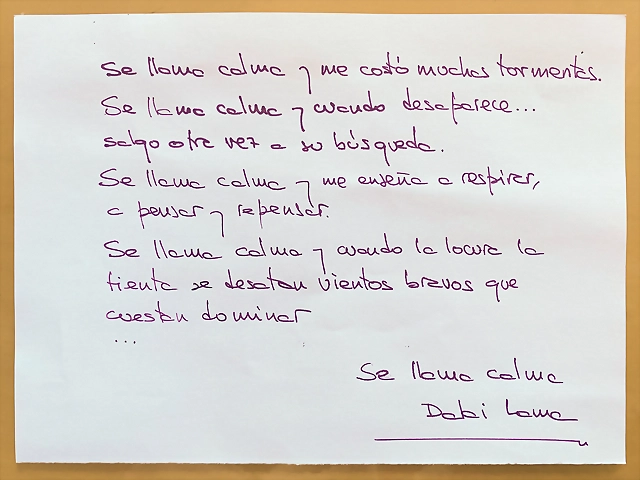 Se llama calma y me costó muchas tormentas.
Se llama calma y cuando desaparece...
salgo otra vez a su búsqueda.
Se llama calma y me enseña a respirar,
a pensar y repensar.
Se llama calma y cuando la locura la
tienta se desatan vientos bravos que
cuestan dominar
...
Se llama calma
Dalai Lama